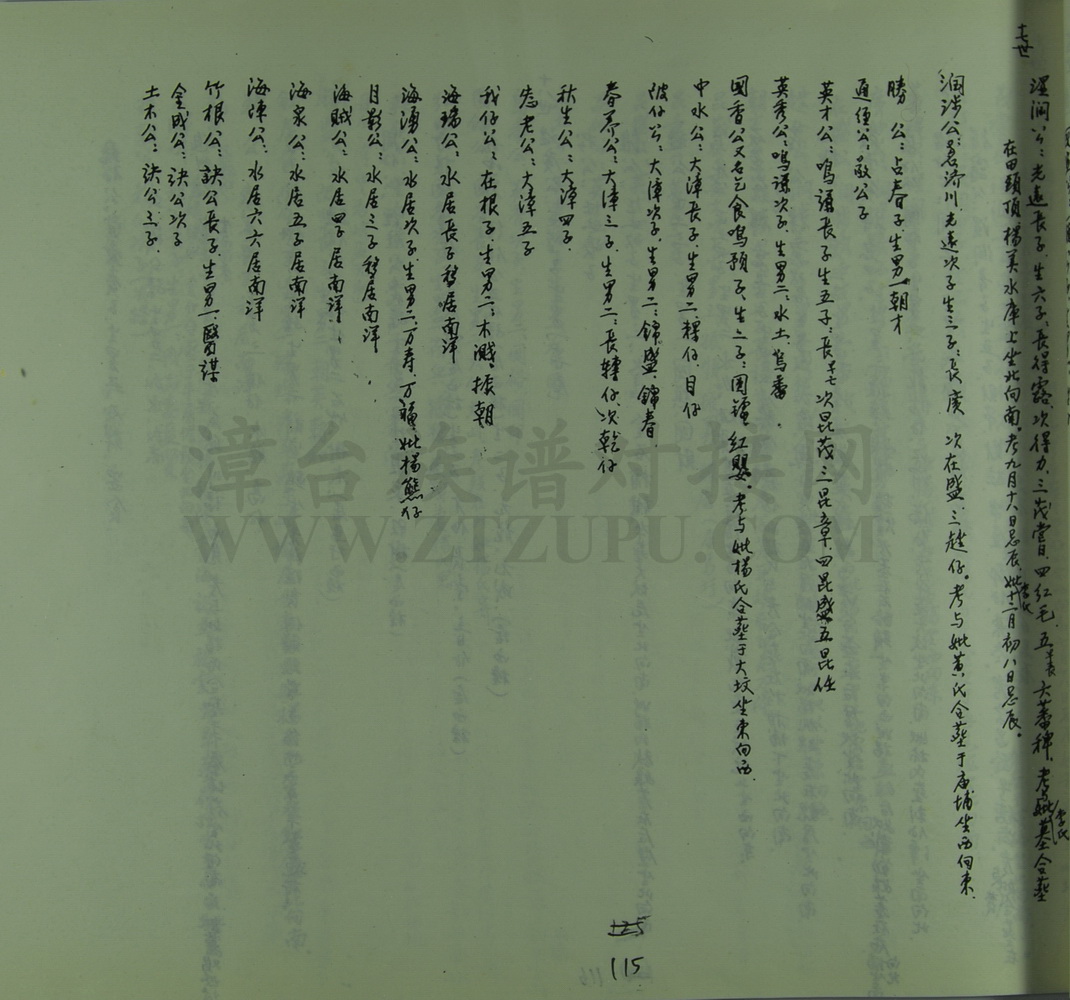 十七世
渥澗公：光遠長子，生六子，長得露，次得力，三茂當，四紅毛，五羊長，六蕃稗，考與妣李氏墓合葬
在田頭頂，楊美水庫上坐北向南。考九月十八日忌辰，妣李氏十二月初八日忌辰。
潤涉公：名济川，光遠次子，生三子：長廣 次在盛，三趖仔。考与妣黄氏合葬于庙埔坐西向東.
勝 公：占春子，生男一朝才
通便公：敬公子
英才公：鳴謙長子，生五子：長羊七，次昆茂，三昆章，四昆盛，五昆任
英秀公：鳴謙次子，生男二：水土，
國香公又名乞食鳴預子，生二子：国，紅嬰。考与妣楊氏合葬于大坟坐東向西.
中水公：大漳長子，生男二：粿仔，目仔
仔公：大漳次子，生男二：錦盛，錦春.
春養公：大漳三子，生男二：長轉仔，次乾仔
秋生公：大漳四子.
老公：大漳五子
我仔公：在根子，生男二：木濺，振朝
海瑞公：水居長子移居南洋
海湧公：水居次子，生男二：万寿，万福，妣楊熊仔
月影公：水居三子移居南洋
海賊公：水居四子居南洋
海家公：水居五子居南洋
海涷公：水居六六居南洋
竹根公：訣公長子，生男一：賢謀
金成公：訣公次子
土木公：訣公三子.
125
115
漳台族谱对接网
WWW.ZTZUPU.COM